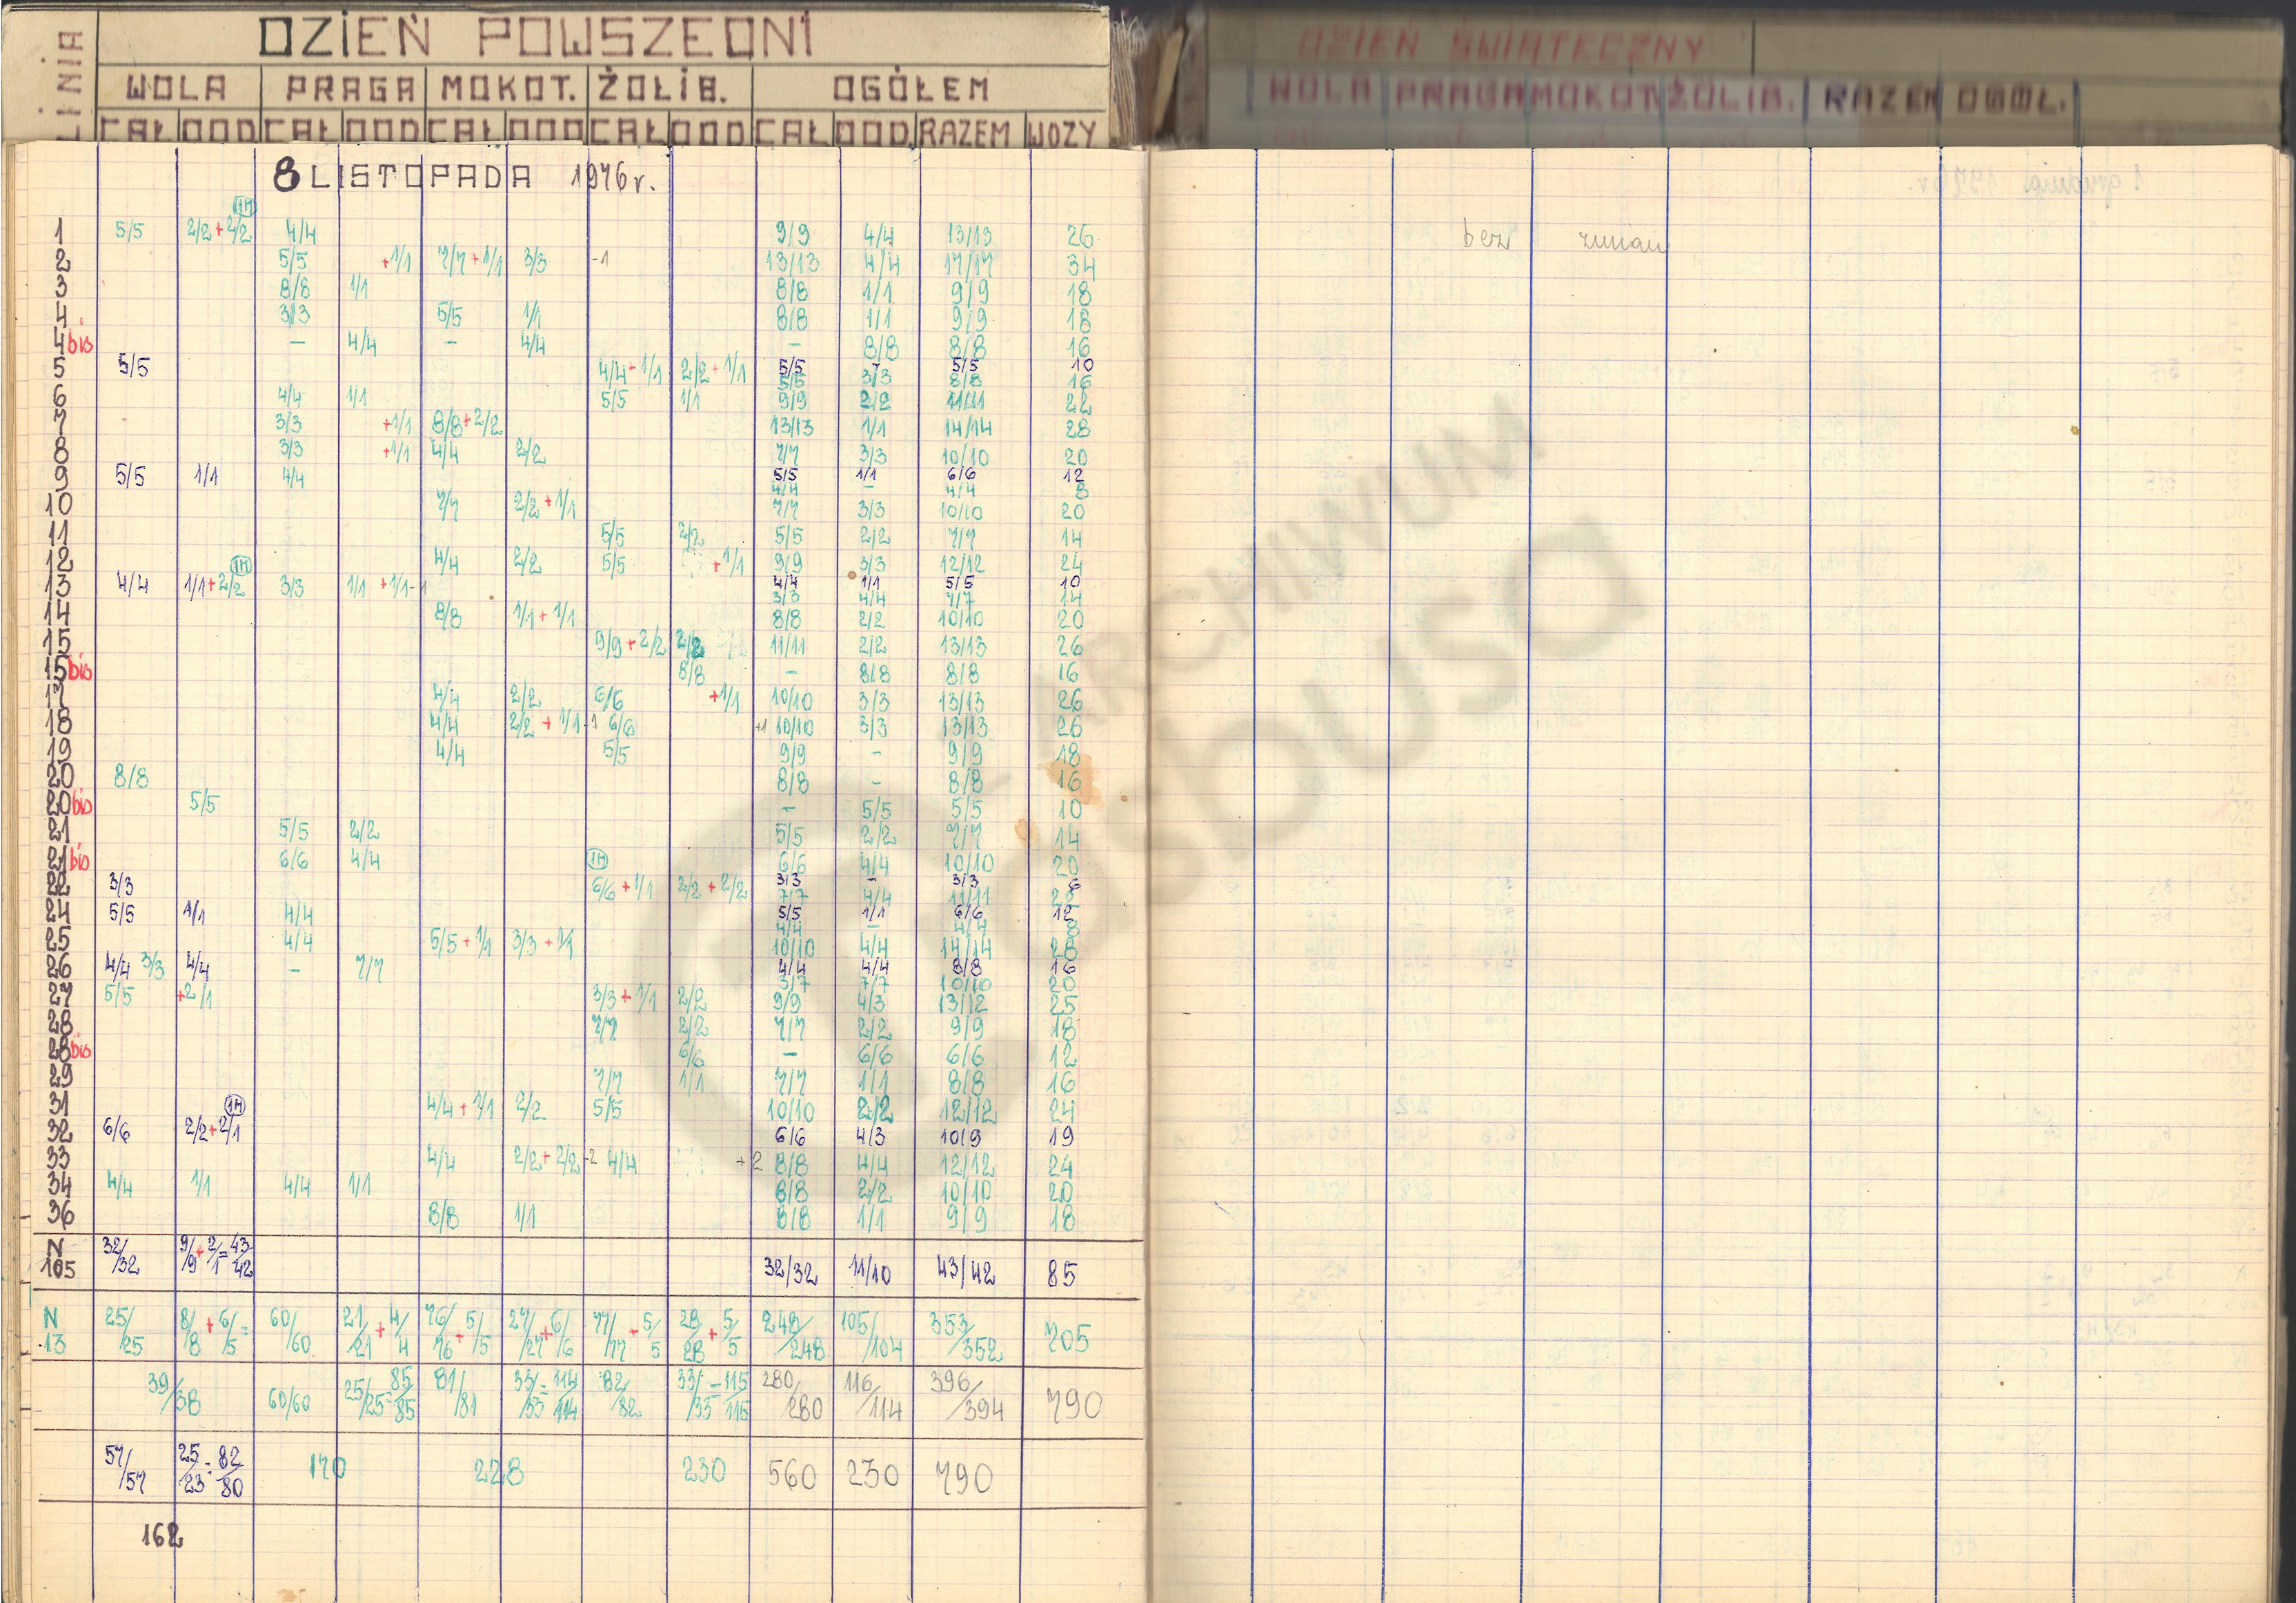 LINIA DZIEŃ POWSZEDNI
WOLA PRAGA MOKOT. ŻOLIB. OGÓŁEM
CAŁ DOD CAŁ DOD CAŁ DOD CAŁ DOD CAŁ DOD. RAZEM WOZY
DZIEŃ ŚWIĄTECZNY
WOLA PRAGA MOKOT. ŻOLIB. RAZEM OGÓŁ.
8 LISTOPADA 1976 r.
1H
1 5/5 2/2+2/2 4/4 9/9 4/4 13/13 26
bez zmian
2 5/5 +1/1 7/7+1/1 3/3 -1 13/13 4/4 17/17 34
3 8/8 1/1 8/8 1/1 9/9 18
4 3/3 5/5 1/1 8/8 1/1 9/9 18
4bis - 4/4 - 4/4 - 8/8 8/8 16
5 5/5 4/4+1/1 2/2+1/1 5/5 - 5/5 10
5/5 3/3 8/8 16
6 4/4 1/1 5/5 1/1 9/9 2/2 11/11 22
7 3/3 +1/1 8/8+2/2 13/13 1/1 14/14 28
8 3/3 +1/1 4/4 2/2 7/7 3/3 10/10 20
9 5/5 1/1 4/4 5/5 1/1 6/6 12
4/4 - 4/4 8
10 7/7 2/2+1/1 7/7 3/3 10/10 20
11 5/5 2/2 5/5 2/2 7/7 14
12 4/4 2/2 5/5 +1/1 9/9 3/3 12/12 24
1H
13 4/4 1/1+2/2 3/3 1/1 +1/1-1 4/4 1/1 5/5 10
3/3 4/4 7/7 14
14 8/8 1/1+1/1 8/8 2/2 10/10 20
15 9/9+2/2 2/2 11/11 2/2 13/13 26
15bis 8/8 - 8/8 8/8 16
17 4/4 2/2 6/6 +1/1 10/10 3/3 13/13 26
18 4/4 2/2+1/1 -1 6/6 +1 10/10 3/3 13/13 26
19 4/4 5/5 9/9 - 9/9 18
20 8/8 8/8 - 8/8 16
20bis 5/5 - 5/5 5/5 10
21 5/5 2/2 5/5 2/2 7/7 14
21bis 6/6 4/4 1H 6/6 4/4 10/10 20
22 3/3 6/6+1/1 2/2+2/2 3/3 - 3/3 6
7/7 4/4 11/11 22
24 5/5 1/1 4/4 5/5 1/1 6/6 12
4/4 - 4/4 8
25 4/4 5/5+1/1 3/3+1/1 10/10 4/4 14/14 28
26 4/4 3/3 4/4 - 7/7 4/4 4/4 8/8 16
7/7 10/10 20
27 5/5 +2/1 3/3+1/1 2/2 9/9 4/3 13/12 25
28 7/7 2/2 7/7 2/2 9/9 18
28bis 6/6 - 6/6 6/6 12
29 7/7 1/1 7/7 1/1 8/8 16
31 4/4+1/1 2/2 5/5 10/10 2/2 12/12 24
1H
32 6/6 2/2+2/1 6/6 4/3 10/9 19
33 4/4 2/2+2/2 -2 4/4 +2 8/8 4/4 12/12 24
34 4/4 1/1 4/4 1/1 8/8 2/2 10/10 20
36 8/8 1/1 8/8 1/1 9/9 18
N 105 32/32 9/9+2/1=43/42 32/32 11/10 43/42 85
N 13 25/25 8/8+6/5= 60/60 21/21+4/4 76/76+5/5 27/27+6/6 77/77+5/5 28/28+5/5 248/248 105/104 353/352 705
39/38 60/60 25/25=85/85 81/81 33/33=114/114 82/82 33/33=115/115 280/280 116/114 396/394 790
57/57 25/23=82/80 170 228 230 560 230 790
162
ARCHIWUM